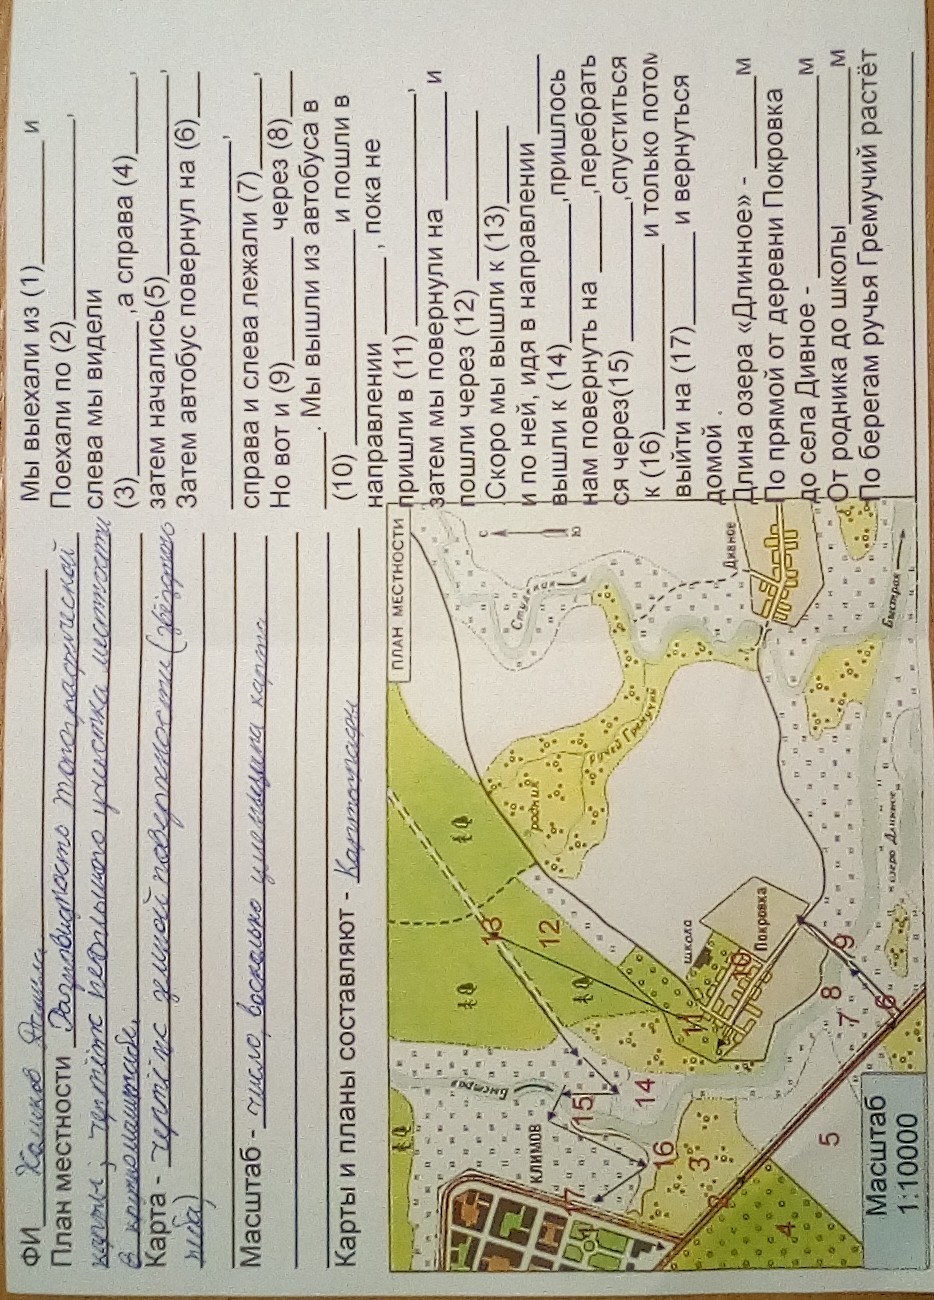 ФИ Халиков Данил
План местности Разновидность топографической
карты, чертёж небольшого участка местности
в крупном масштабе.
Карта - чертёж земной поверхности (звёздного
неба)
Масштаб - число, во сколько уменьшена карта
Карты и планы составляют - Картографы
Мы выехали из (1)________ и
Поехали по (2)________,
слева мы видели
(3)________,а справа (4)____,
затем начались(5)________,
Затем автобус повернул на (6)__
________,
справа и слева лежали (7)____,
Но вот и (9)________ через (8)___
____. Мы вышли из автобуса в
(10)________ и пошли в
направлении ____, пока не
пришли в (11)________,
затем мы повернули на ______ и
пошли через (12)________
.Скоро мы вышли к (13)____
и по ней, идя в направлении ____
вышли к (14)________,пришлось
нам повернуть на ____,перебрать
ся через(15)________,спуститься
к (16)________ и только потом
выйти на (17)______ и вернуться
домой .
Длина озера «Длинное» - ______м
По прямой от деревни Покровка
до села Дивное - ________м
От родника до школы________м
По берегам ручья Гремучий растёт
________
ПЛАН МЕСТНОСТИ
С
Ю
Стул
Дивное
ручей Гремучий
родник
Быстрая
озеро Длинное
школа
Покровка
Быстрая
КЛИМОВ
1
2
3
4
5
6
7
8
9
10
11
12
13
14
15
16
17
Масштаб
1:10000